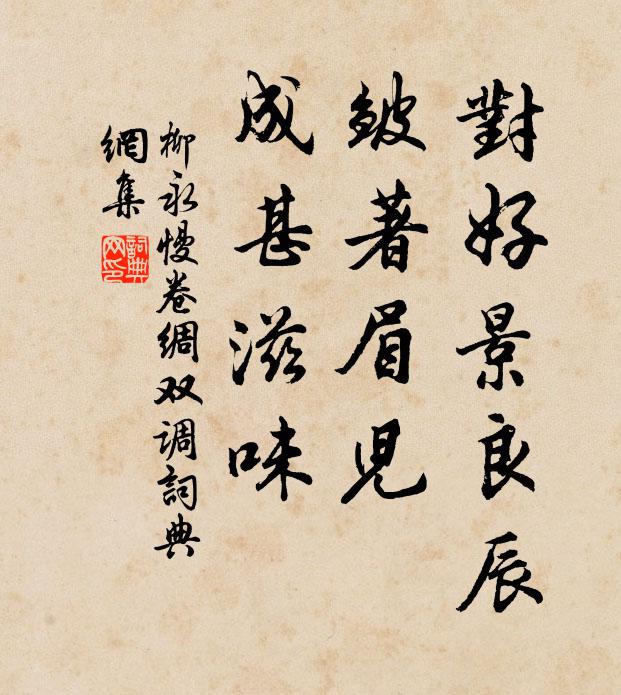 對好景良辰
皴著眉兒
成甚滋味
柳永慢卷綢双调詞典
網集
詞典
网印